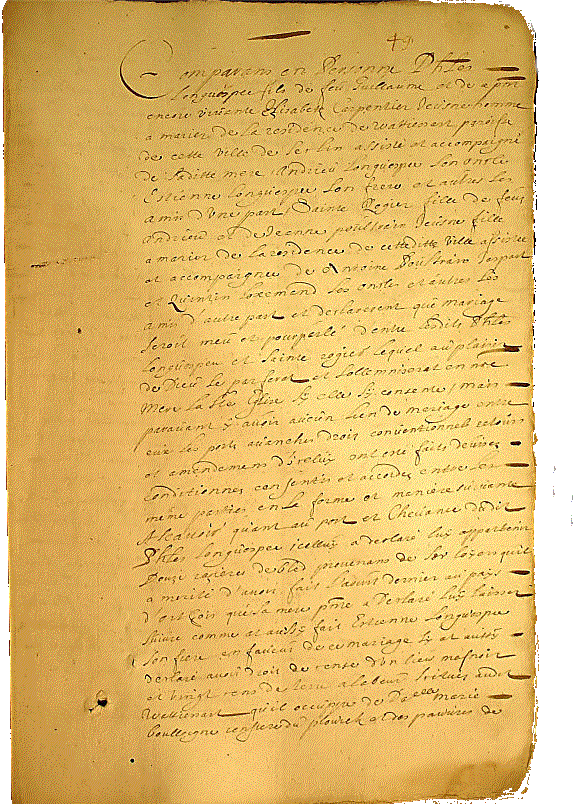 Comparans en Personne Phles
Longuespee fils de feu Guillaume et de apnt
encore vivante Elisabeth Carpentier Jeusne homme
a marier de la residence de Wattienart paroisse
de cette ville de Seclin assisté et accompaigné
de laditte mere Andrieu Longuespee son oncle
Estienne Longuespee son frere et autres ses
amis d'une part, Sainte Rogier fille de feus
Andrieu et de Jeanne Poustrain Jeusne fille
a marier de la residence de cetteditte ville assistee
et accompaignee de Antoine Poustrain
et Quintin ses oncles et autres ses
amis d'autre part et declarerent que mariage
seroit meu et pourparlé d'entre lesdits Phles
Longuespee et Sainte Rogier lequel au plaisir
de Dieu se parferat et sollemniserat en nre
Mere la Ste Eglise sy elle sy consente, mais
paravant y avoir aucun lien de mariage entre
eux les ports avanches droits conventionnels retours
et amendemens d'iceluy ont esté faits devises
conditionnes consentis et accordes entre les
mesme parties en la forme et maniere suivante
Ascavoir quant au port et Chevance dudit
Phles Longuespee icelluy a declaré luy appartenir
Douze rasieres de bled provenans de ses loyers qu'il
a merité d'avoir fait l'aoust dernier au pays
d'Artois que sa mere pnte a declaré luy laisser
suivre comme at aussy fait Estienne Longuespee
son frere en faveur de ce mariage sy at aussy
declaré avoir droit de cense d'un lieu manoir
et vingt cens de terre a labeur seitues audit
Wattienart qu'il occuppe de Dlle Marie
boullogne censiere du et des pauvres de